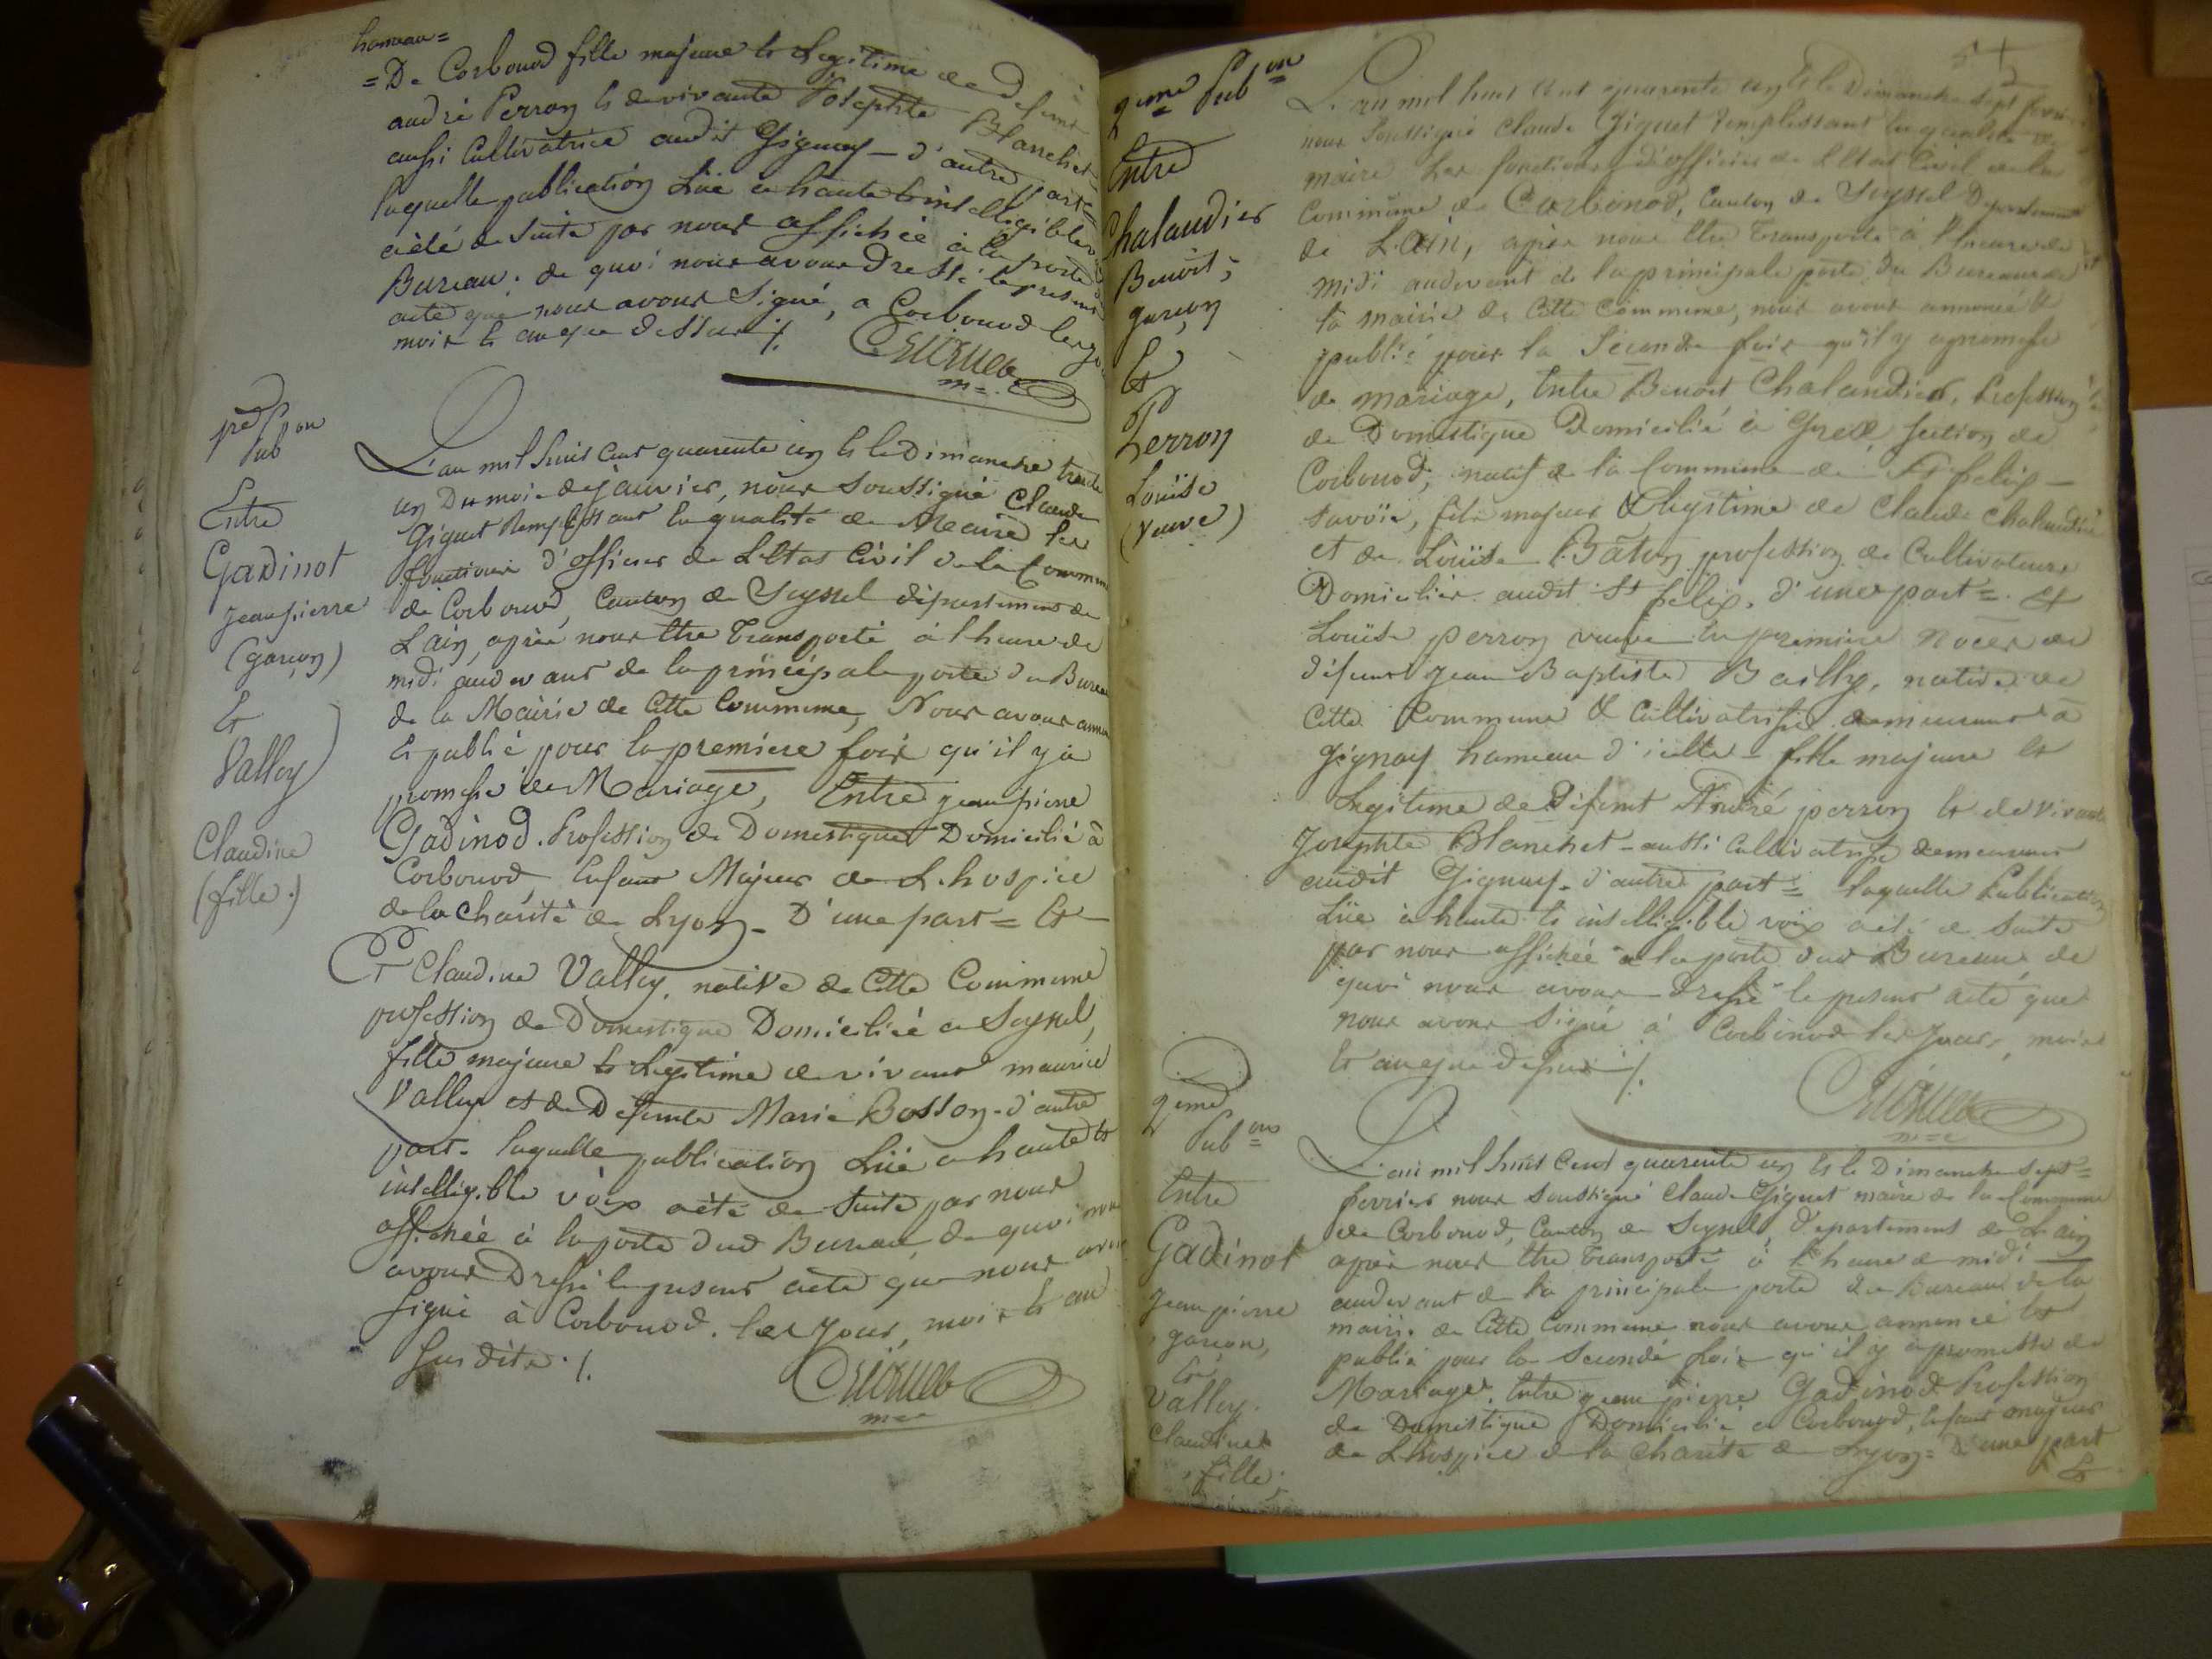 hameau=
=De Corbonod fille majeure et Legitime de Défunt
andré Perron et de vivante Josephte Blanchet
aussi Cultivatrice audit Gignay - d'autre part=
laquelle publication Lüe a haute et intelligible voix
a été de suite par nous affichée à la porte du
Bureau: de quoi nous avons Dressé le present
acte que nous avons Signé, a Corbonod les jour
mois et an que dessus ./.
m=
pre Pub on
Entre
Gadinot
jean pierre
(garçon)
Et
Valley
Claudine
(fille.)
L'an mil huit cent quarante un et le Dimanche trente
un Du mois de janvier, nous soussigné Claude
Giguet Remplissant la qualité de Maire les
fonctions d'officier de L'Etat Civil de la Commune
de Corbonod, Canton de Seyssel département de
L'ain, après nous être Transporté à l'heure de
midi audevant de la principale porte du Bureau
de la Mairie de Cette Commune, Nous avons annoncé
Et publié pour la premiere fois qu'il y a
promesse de Mariage, Entre jean pierre
Gadinod. Profession de Domestique Domicilié à
Corbonod, Enfant Majeur de L'hospice
de la Charité de Lyon - D'une part = Et
Et Claudine Valley, native de Cette Commune
profession de Domestique Domiciliée a Seyssel,
fille majeure et Legitime de vivant maurice
Valley et de Défunte Marie Bosson - d'autre
part - laquelle publication Lüe a haute et
intelligible voix a été de suite par nous
affichée à la porte dud Bureau, de quoi nous
avons Dressé le present acte que nous avons
Signé à Corbonod. les jour, mois et an
Susdits ./.
m=
2eme Pub on
Entre
Chalandier
Benoit;
garçon
Et
Perron
Louïse
(veuve)
L'an mil huit cent quarante un et le Dimanche sept fevrier
nous Soussigné Claude Giguet remplissant la qualité de
maire Les fonctions d'officier de L'Etat Civil de la
Commune de Corbonod, Canton de Seyssel Département
de L'ain, après nous être Transporté à l'heure de
midi audevant de la principale porte du Bureau de
la mairie de Cette Commune, nous avons annoncé et
publié pour la Seconde fois qu'il y a promesse
de mariage, Entre Benoit Chalandier, Profession
de Domestique Domicilié à section de
Corbonod, natif de la Commune de St felix -
savoïe, fils majeur & légitime de Claude Chalandier
et de Louïse Baton profession de Cultivateurs
Domiciliés audit St félix, d'une part =. Et
Louïse perron veuve en premiere Noces de
défunt jean Baptiste Bailly, native de
Cette Commune & Cultivatrise demeurant à
Gignay hameau d'icelle - fille majeure et
Legitime de Défunt André perron et de vivante
Josephte Blanchet - aussi Cultivatrise demeurant
audit Gignay - d'autre part = laquelle Publication
Lüe à haute et intelligible voix a été de suite
par nous affichée à la porte dud Bureau, de
quoi nous avons dressé le present acte que
nous avons Signé à Corbonod les jours, mois
Et an que dessus ./.
m=e
2eme
Pub on
Entre
Gadinot
jean pierre
garçon,
Et
Valley
Claudine
fille;
L'an mil huit Cent quarante un et le Dimanche sept=
fevrier nous soussigné Claude Giguet maire de la Commune
de Corbonod, Canton de Seyssel, departement de L'ain
après nous être Transporté à l'heure de midi
audevant de la principale porte du Bureau de la
mairie de Cette Commune nous avons annoncé et
publié pour la Seconde fois qu'il y a promesse de
Mariage, Entre jean pierre Gadinod Profession
de Domestique Domicilié a Corbonod, Enfant majeur
de L'hospice de la Charité de Lyon = D'une part
Et